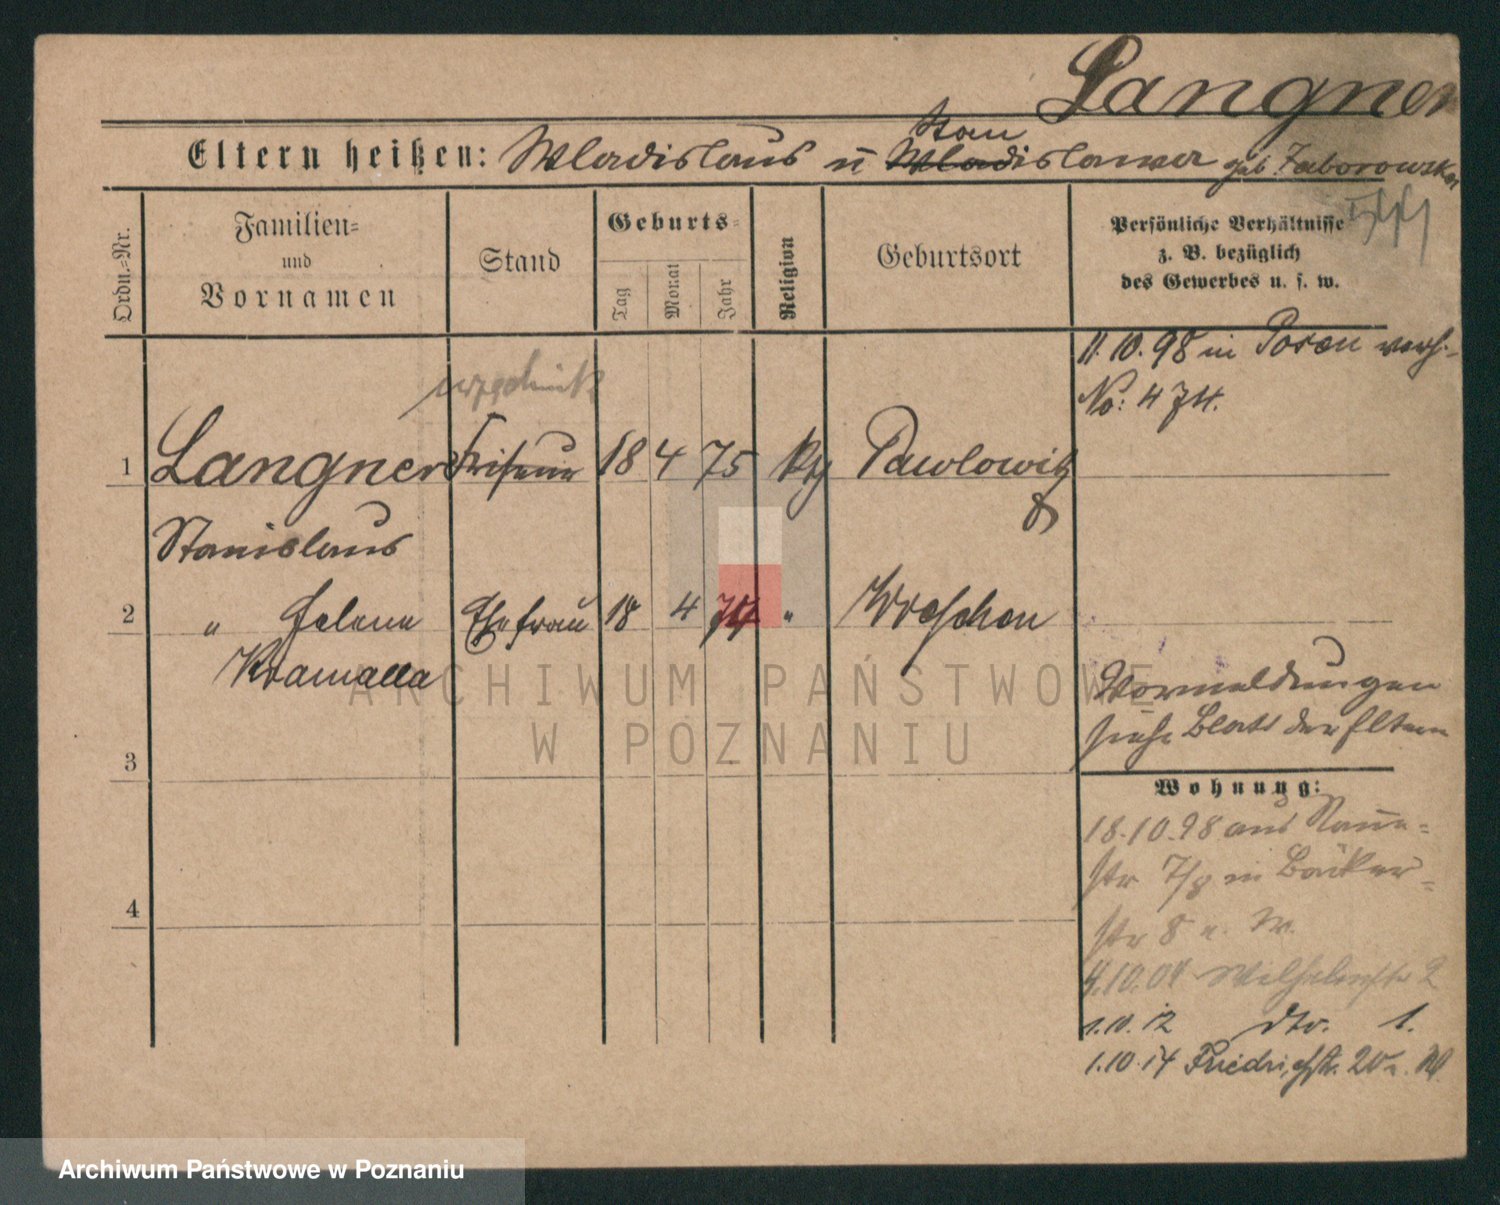 Langner
Eltern heißen: Wladislaus u Stanislawa geb Zaborowska
Ordn.-Nr.
Familien-
und
Vornamen
Stand
Geburts-
Tag
Monat
Jahr
Religion
Geburtsort
Persönliche Verhältnisse
z. B. bezüglich
des Gewerbes u. s. w.
11.10.98 in Posen verh.
No: 474.
urzędnik
1 Langner Friseur 18 4 75 Pawlowitz
Stanislaus
2 " Helene Ehefrau 18 4 74 " Wreschen
Kramalla
Vormeldungen
siehe Blatt der Eltern
3
Wohnung:
18.10.98 aus
str 7/8 in Bäcker-
str 8
4
4.10.04 Wilhelmstr 2
1.10.12 dto. 1.
1.10.14 Friedrichstr. 20
ARCHIWUM PAŃSTWOWE
W POZNANIU
Archiwum Państwowe w Poznaniu